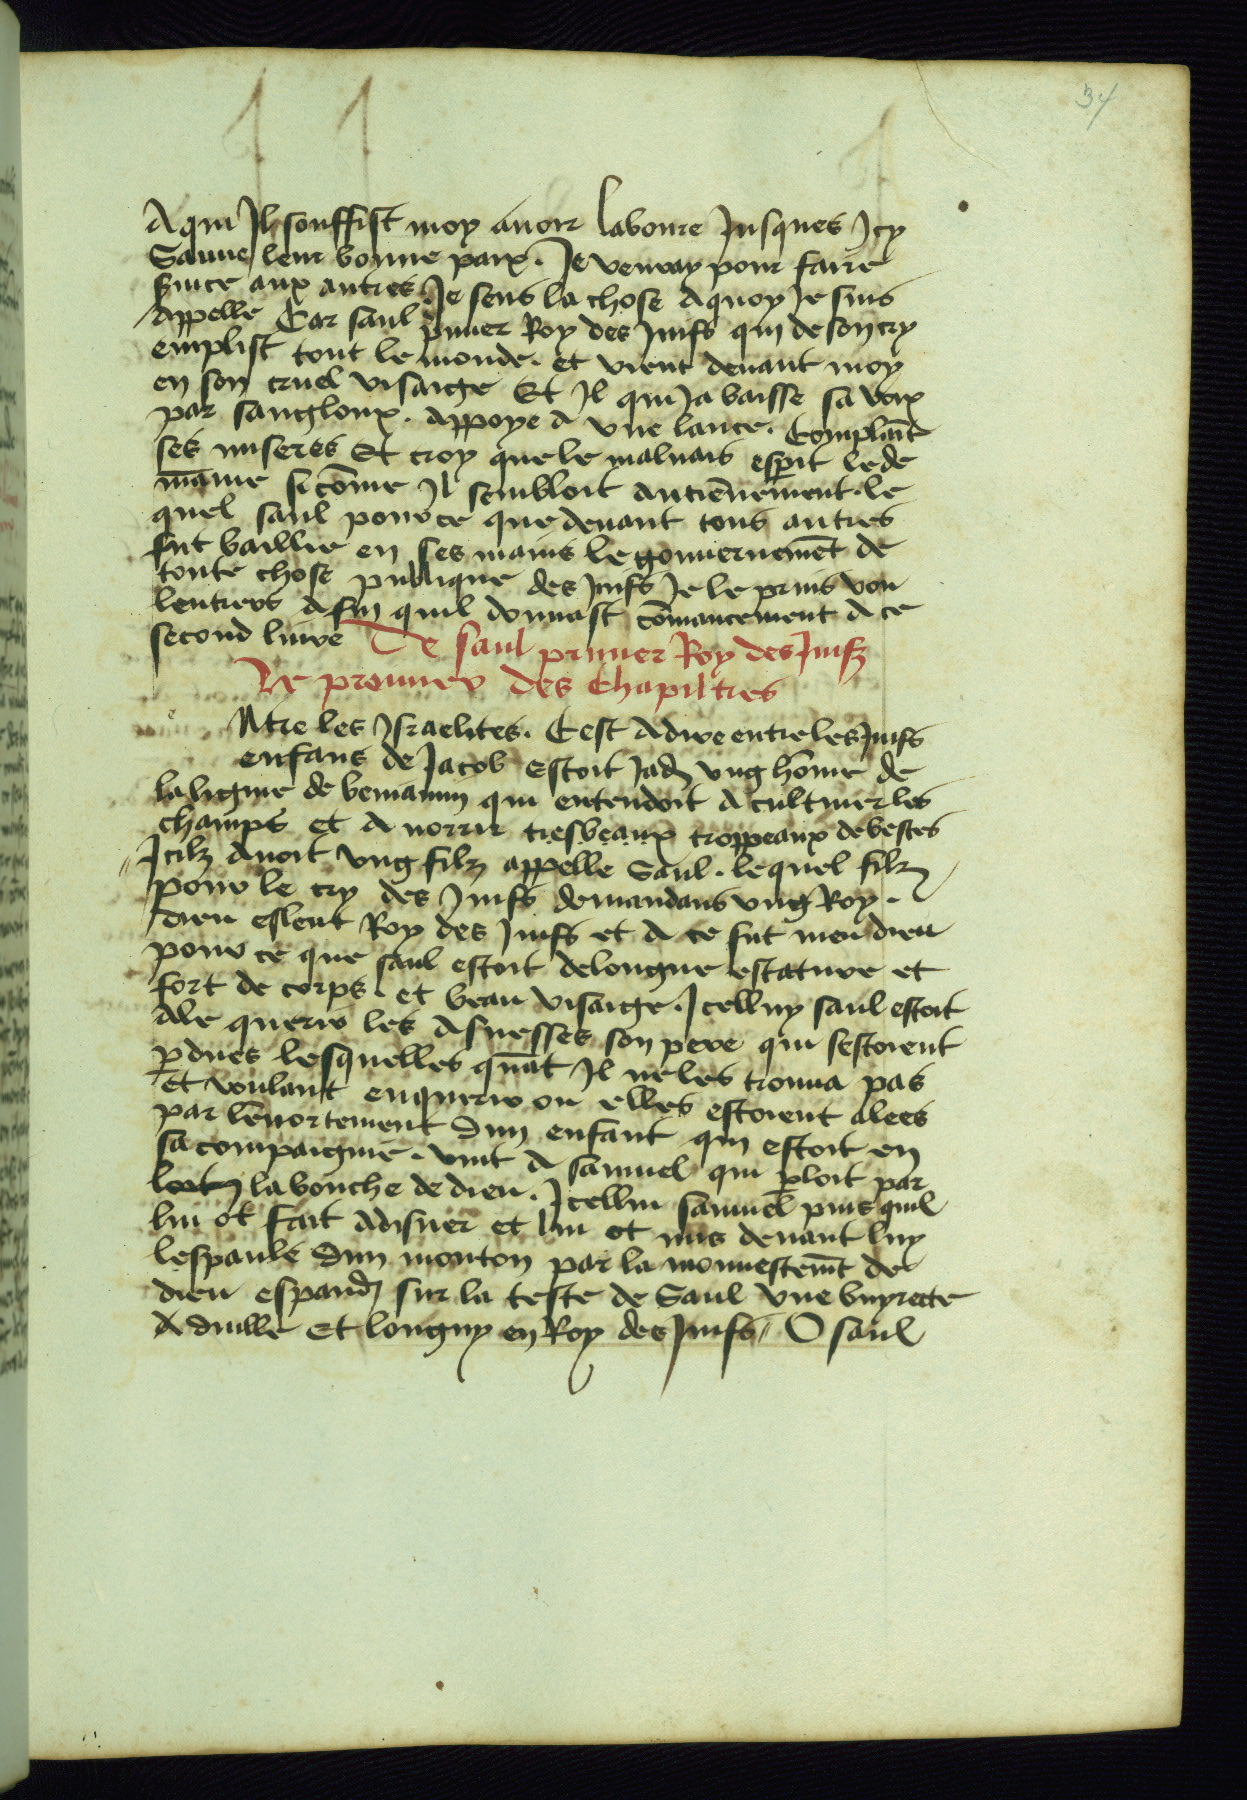 34
A qui Il souffist moy auoir laboure Jusques Jcy
Sauue leur bonne paix. Je venray pour faire
seruice aux autres. Je sens la chose A quoy Je suis
Appelle Car saul primier Roy des Juifs qui de son cry
emplist tout le monde. et vient deuant moy
en son cruel visaige Et Il qui Ja baisse sa voix
par sangloux. Appoye A vne lance. Complaīt
ses miseres Et croy que le maluais esperit le de
māine si cōme Il sembloit anciēnement. le
quel saul pour ce que deuant tous autres
fut baillie en ses mains le gouuernemēt de
toute chose publique des Juifs Je le prins vou
lentiers Afin quil donnast cōmancement A ce
second liure De saul primier Roy des Juifz
Le premier des Chapiltres
e Ntre les Jsraelites. Cest Adire entre les Juifs
enfans de Jacob estoit Jadiz vng hōme de
la lignie de beniamin qui entendoit A cultiuer les
champs et A norrir tresbeaux troppeaux de bestes
Jcilz Auoit vng filz appelle Saul. lequel filz
pour le cry des Juifs demandans vng Roy.
dieu esleut Roy des Juifs et A ce fut meu dieu
pour ce que saul estoit de longue estature et
fort de corps. et beau visaige. Jcelluy saul estoit
Ale querir les Asnesses son pere qui sestoient
perdues lesquelles quāt Il ne les trouua pas
Et voulant enquerir ou elles estoient alees
par lēnortement dun enfant qui estoit en
sa compaignie. vint A samuel qui parloit par
la bouche de dieu. Jcellui samuel puis quil
lui ot fait Adisner et lui ot mis deuant luy
lespaule dun mouton par la monnestemēt de
dieu espandi sur la teste de Saul vne buyrette
A duille Et longny en Roy des Juifs O saul